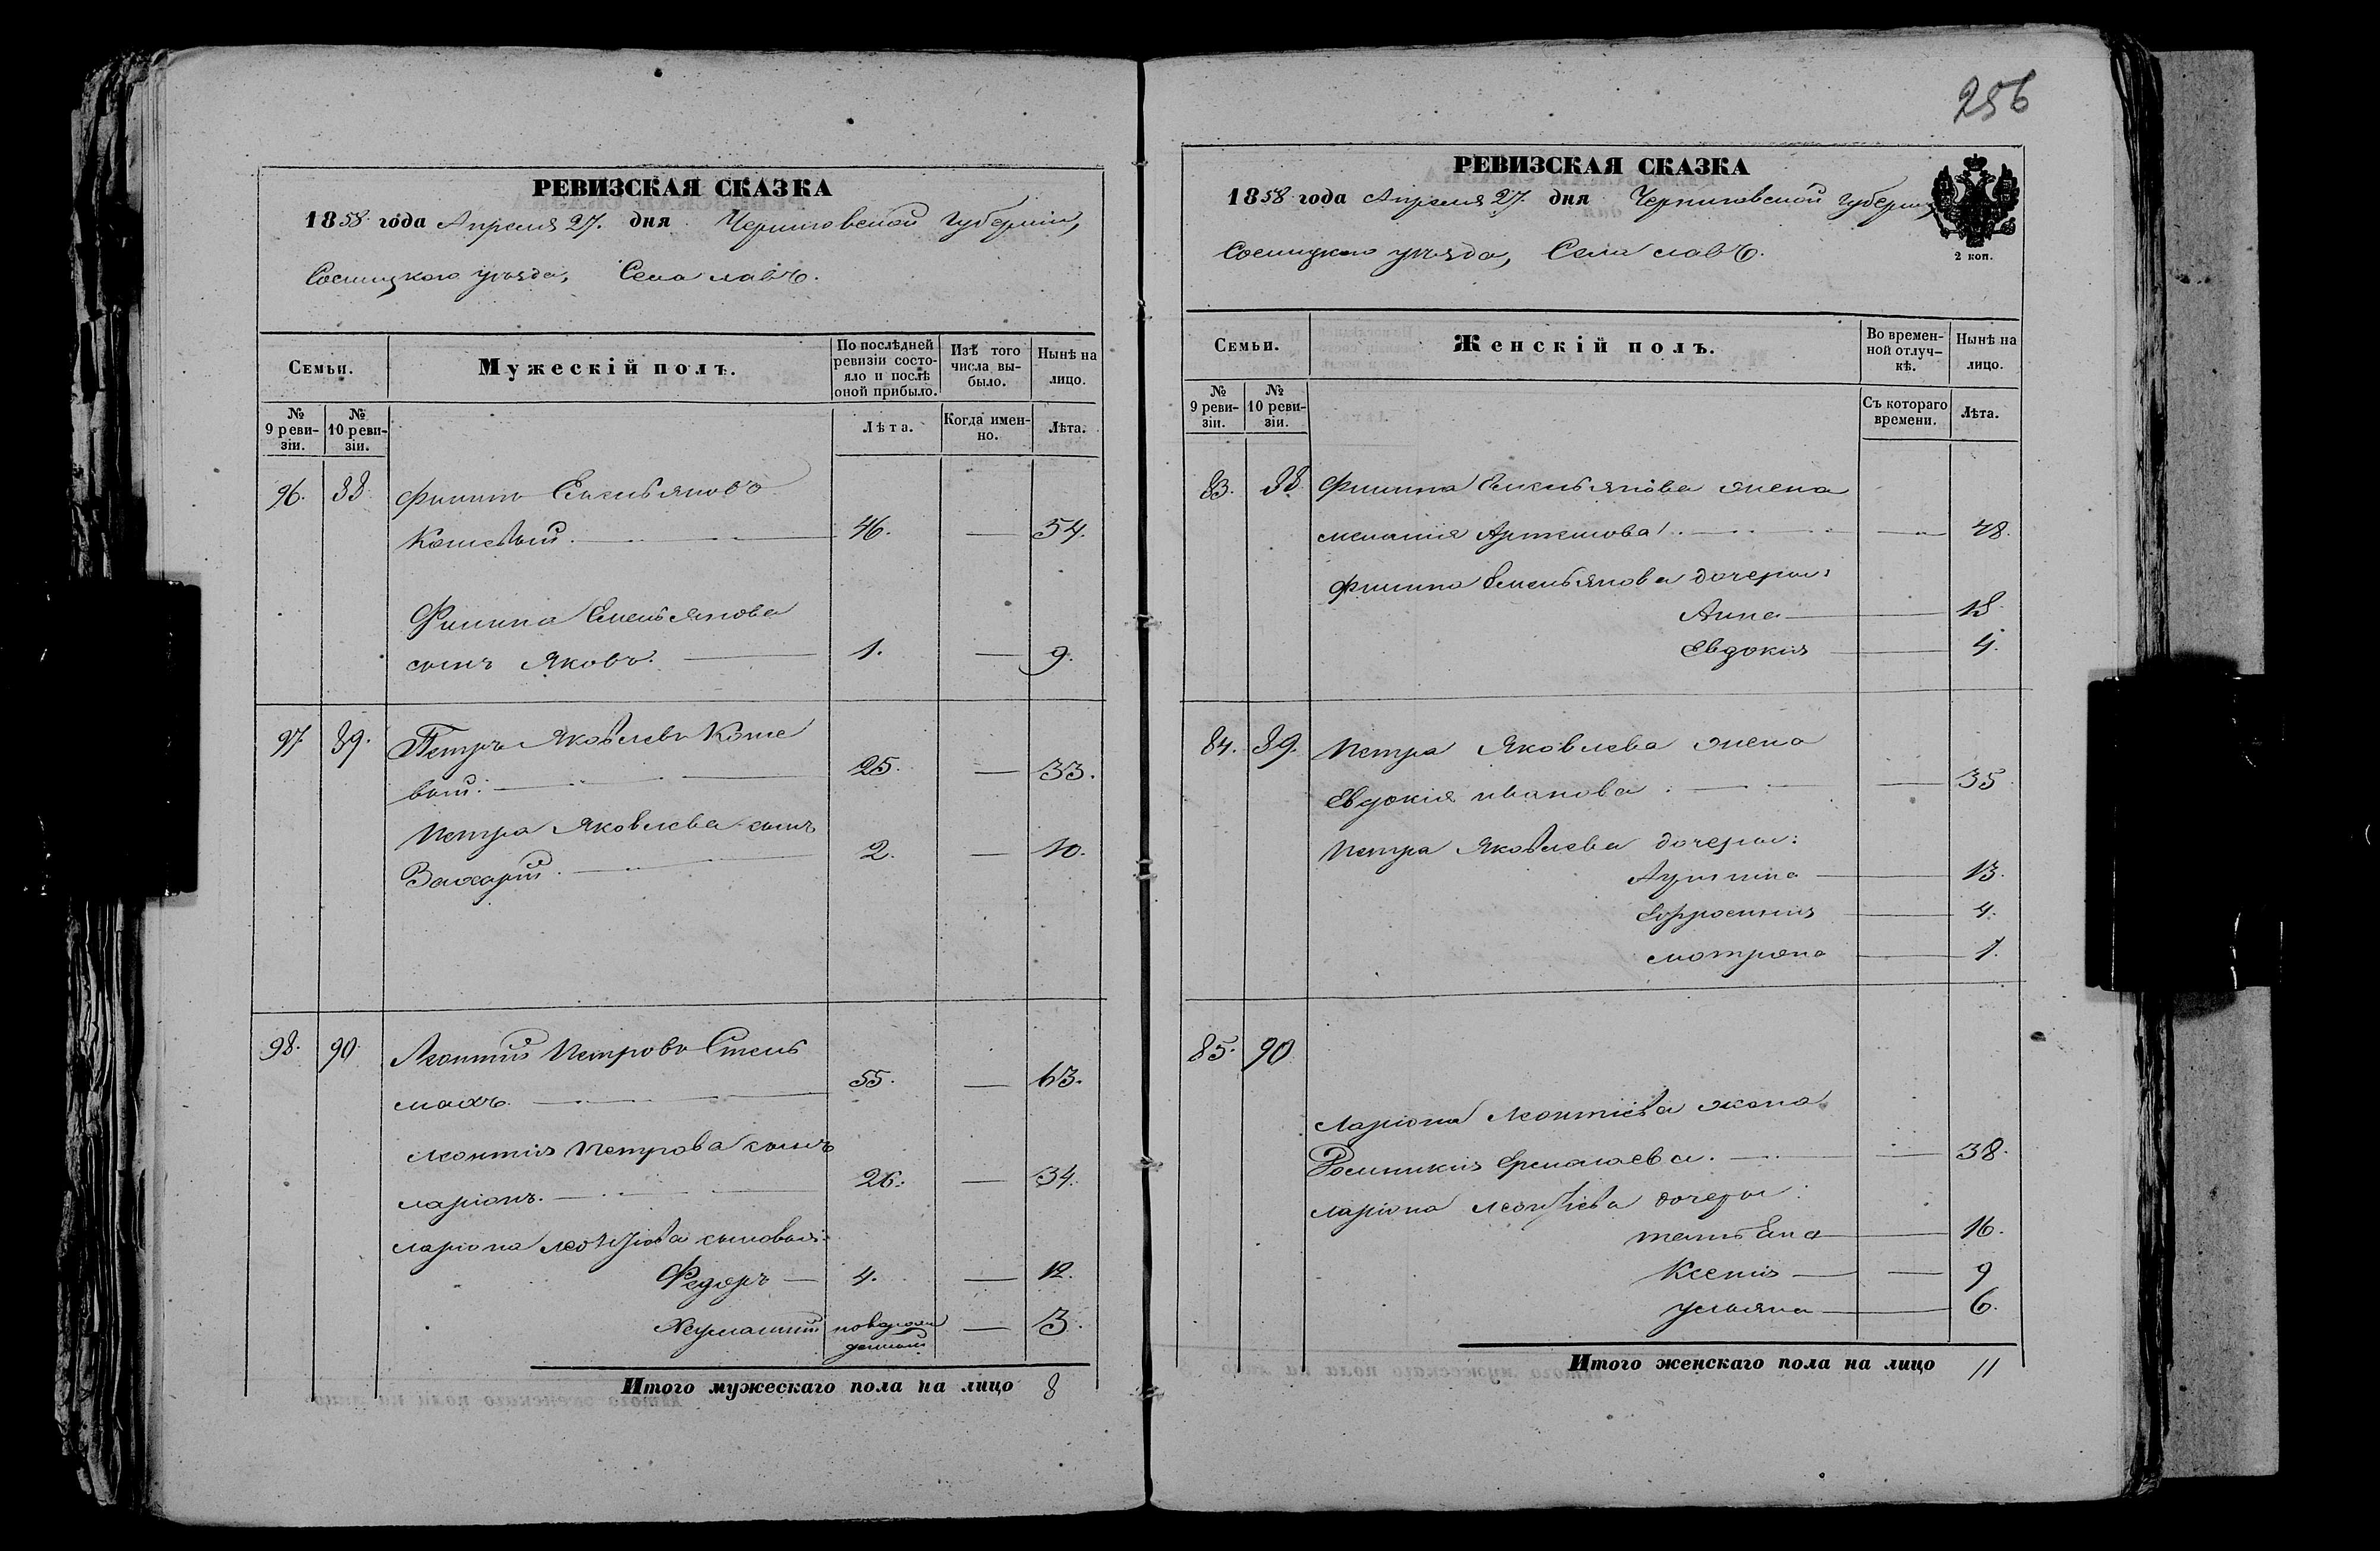 256
РЕВИЗСКАЯ СКАЗКА
1858 года Апреля 27. дня Черниговской Губерніи,
Сосницкого уѣзда, Села Лавъ.
Семьи.
Мужескій полъ.
По послѣдней ревизіи состояло и послѣ оной прибыло.
Изъ того числа выбыло.
Нынѣ на лицо.
№ 9 ревизіи.
№ 10 ревизіи.
Лѣта.
Когда именно.
Лѣта.
96. 88. Филипъ Емельяновъ
Кошевый. 46. — 54.
Филипа Емельянова
сынъ Яковъ. 1. — 9.
97. 89. Петръ Яковлевъ Коше
вый. 25. — 33.
Петра Яковлева сынъ
Захарій. 2. — 10.
98. 90. Леонтій Петровъ Стель
махъ. 55. — 63.
Леонтія Петрова сынъ
Ларіонъ. 26. — 34.
Ларіона Леонтіева сыновья:
Федоръ — 4. — 12.
новорож
денный — 3.
Итого мужескаго пола на лицо 8
РЕВИЗСКАЯ СКАЗКА
1858 года Апреля 27. дня Черниговской Губерніи
2 коп.
Сосницкого уѣзда, Села Лавъ.
Семьи.
Женскій полъ.
Во временной отлучкѣ.
Нынѣ на лицо.
№ 9 ревизіи.
№ 10 ревизіи.
Съ котораго времени.
Лѣта.
83. 88. Филипа Емельянова жена
Меланія Артемова. — 48.
Филипа Емельянова дочери:
Анна — 18.
Евдокія — 4.
84. 89. Петра Яковлева жена
Евдокія Иванова. — 35
Петра Яковлева дочери:
13.
Ефросинія — 4.
Мотрона — 1.
85. 90
Ларіона Леонтіева жена
Ермолаева. — 38.
Ларіона Леонтіева дочери:
Татьяна — 16.
Ксенія — 9
Ульяна — 6.
Итого женскаго пола на лицо 11